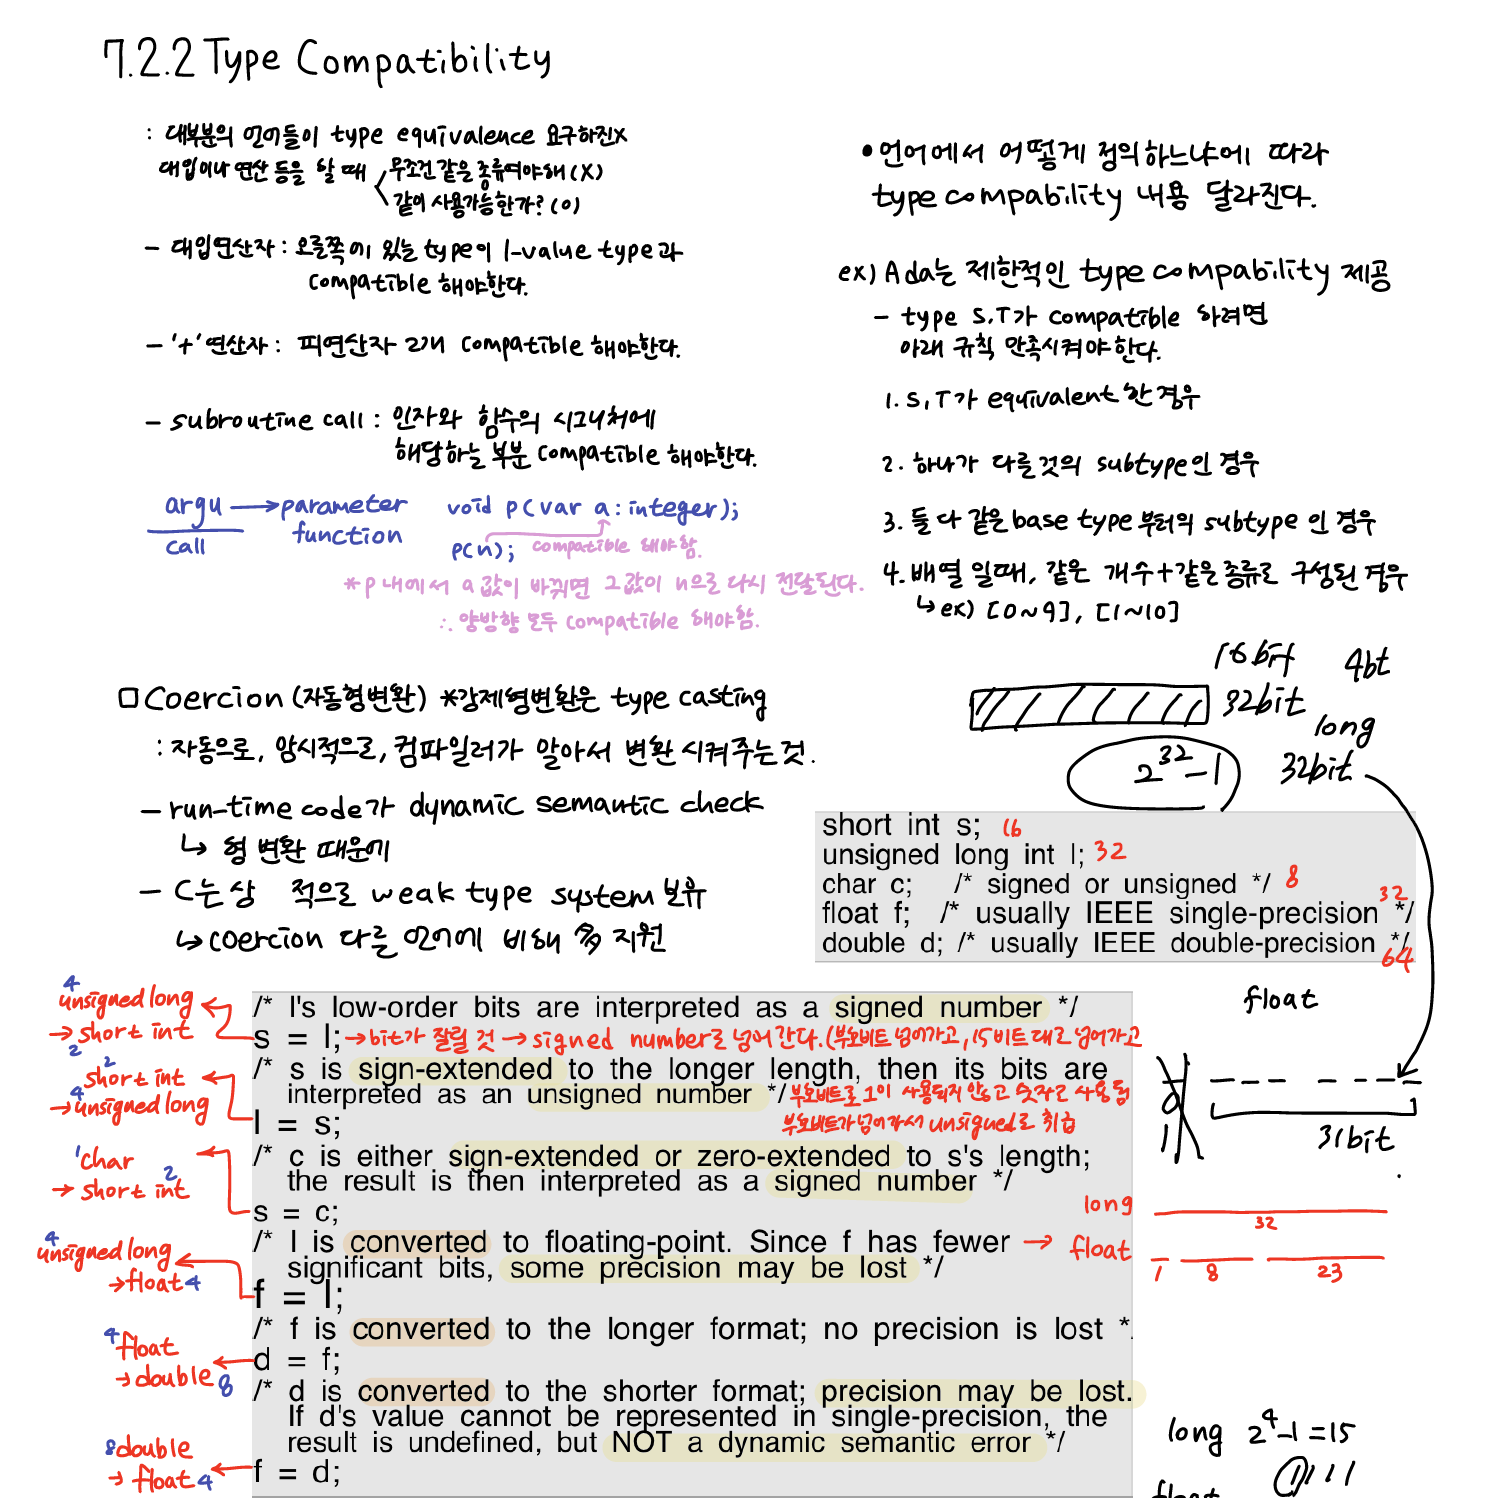 7.2.2 Type Compatibility
: 대부분의 언어들이 type equivalence 요구하진X
대입이나 연산 등을 할 때
무조건 같은 종류여야해 (X)
같이 사용가능한가? (O)
- 대입연산자 : 오른쪽에 있는 type이 l-value type과
compatible 해야한다.
- '+' 연산자 : 피연산자 2개 compatible 해야한다.
- subroutine call : 인자와 함수의 시그니처에
해당하는 부분 compatible 해야한다.
argu → parameter
call function
void p(var a : integer);
p(n); compatible 해야함.
*p 내에서 a값이 바뀌면 그 값이 n으로 다시 전달된다.
∴ 양방향 모두 compatible 해야함.
□ Coercion (자동형변환) *강제형변환은 type casting
: 자동으로, 암시적으로, 컴파일러가 알아서 변환 시켜주는 것.
- run-time code가 dynamic semantic check
↳ 형 변환 때문에
- C는 상 적으로 weak type system 보유
↳ coercion 다른 언어에 비해 多 지원
• 언어에서 어떻게 정의하느냐에 따라
type compability 내용 달라진다.
ex) Ada는 제한적인 type compability 제공
- type S,T가 compatible 하려면
아래 규칙 만족시켜야 한다.
1. S,T가 equivalent 한 경우
2. 하나가 다른것의 subtype인 경우
3. 둘 다 같은 base type부터의 subtype 인 경우
4. 배열 일때, 같은 개수+같은 종류로 구성된 경우
↳ ex) [0~9], [1~10]
16bit 4bt
32bit
long
2^32-1 32bit
short int s; 16
unsigned long int l; 32
char c; /* signed or unsigned */ 8
float f; /* usually IEEE single-precision */ 32
double d; /* usually IEEE double-precision */ 64
float
31bit
4 unsigned long
→ short int 2
/* l's low-order bits are interpreted as a signed number */
s = l; → bit가 잘릴 것 → signed number로 넘어간다. (부호비트 넘어가고, 15비트 대로 넘어가고
2 short int
4 → unsigned long
/* s is sign-extended to the longer length, then its bits are
interpreted as an unsigned number */ 부호비트로 1이 사용되지 않고 숫자로 사용됨
l = s; 부호비트가 넘어가서 unsigned로 취급
1 char
→ short int 2
/* c is either sign-extended or zero-extended to s's length;
the result is then interpreted as a signed number */
s = c;
4 unsigned long
→ float 4
/* l is converted to floating-point. Since f has fewer → float
significant bits, some precision may be lost */
f = l;
long
32
1 8 23
4 float
→ double 8
/* f is converted to the longer format; no precision is lost *
d = f;
8 double
→ float 4
/* d is converted to the shorter format; precision may be lost.
If d's value cannot be represented in single-precision, the
result is undefined, but NOT a dynamic semantic error */
f = d;
long 2^4-1=15
1111
float